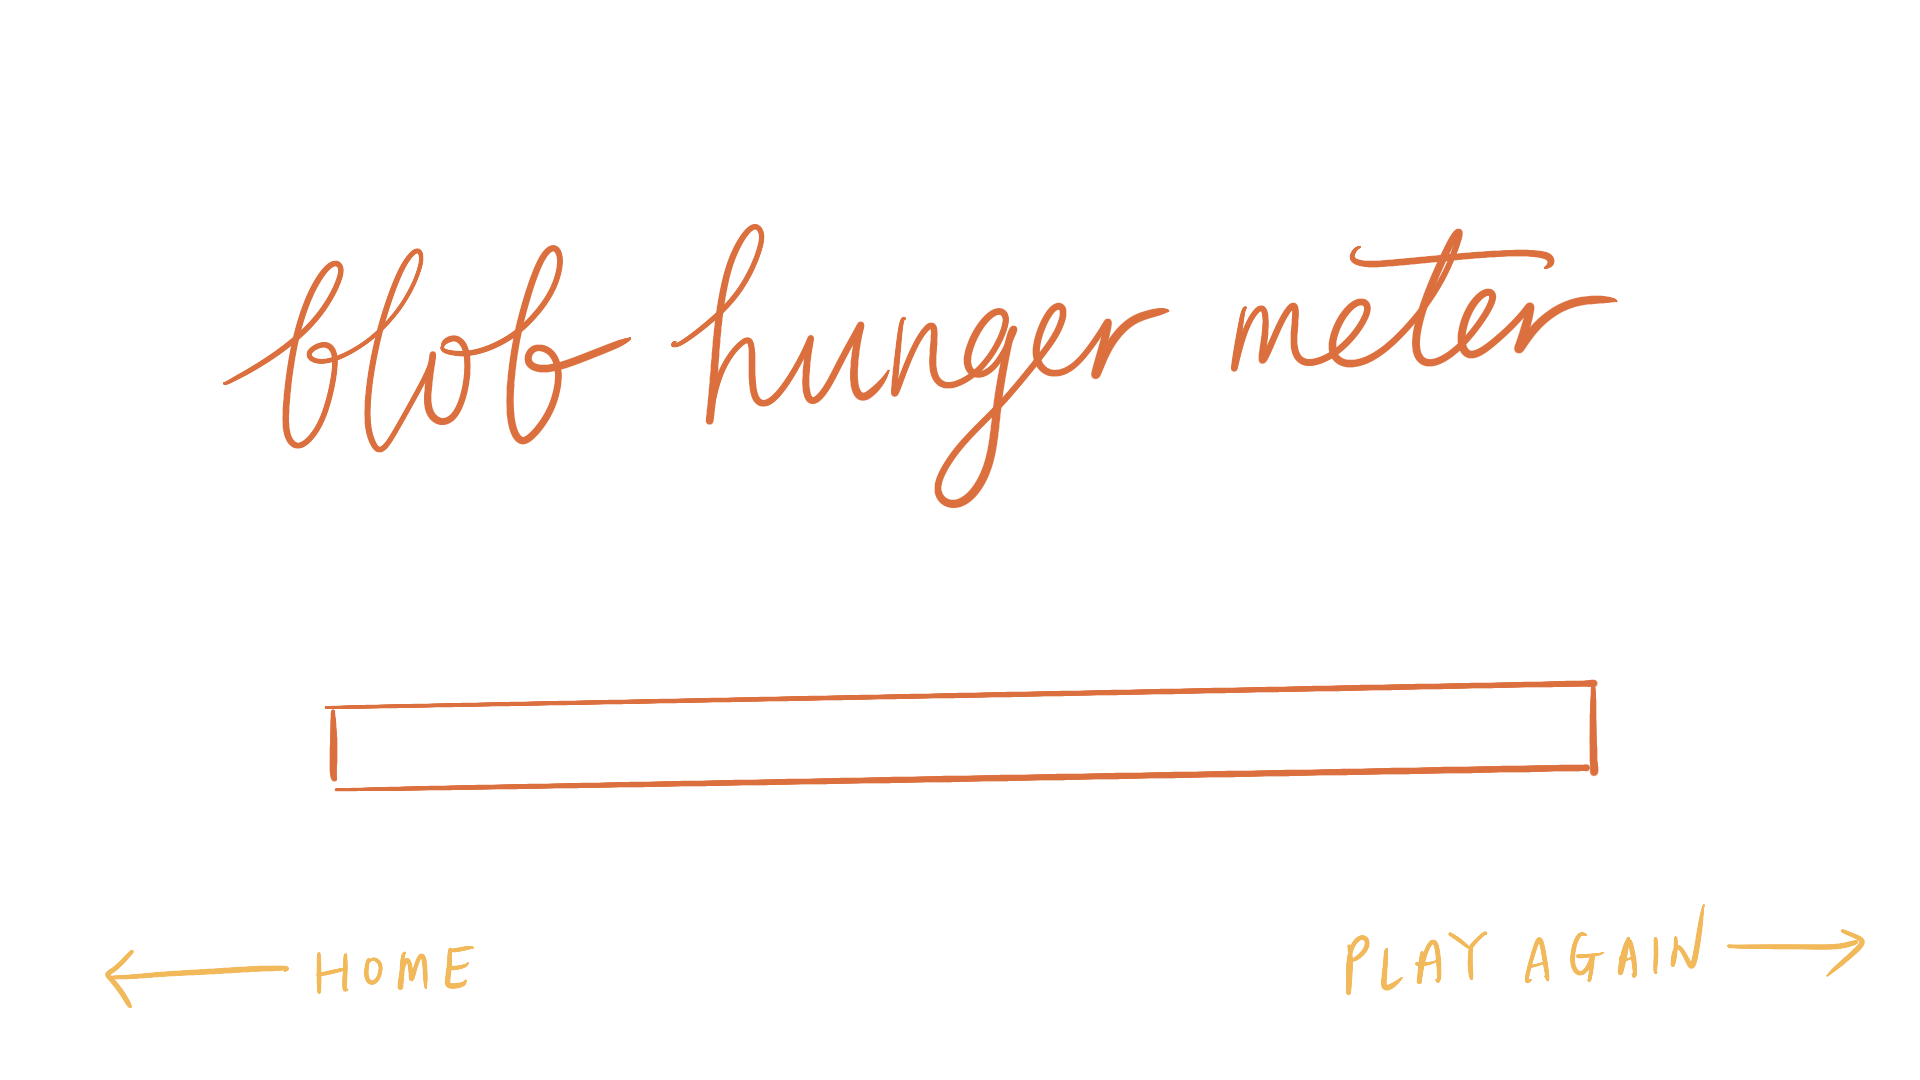 blob hunger meter
HOME
PLAY AGAIN